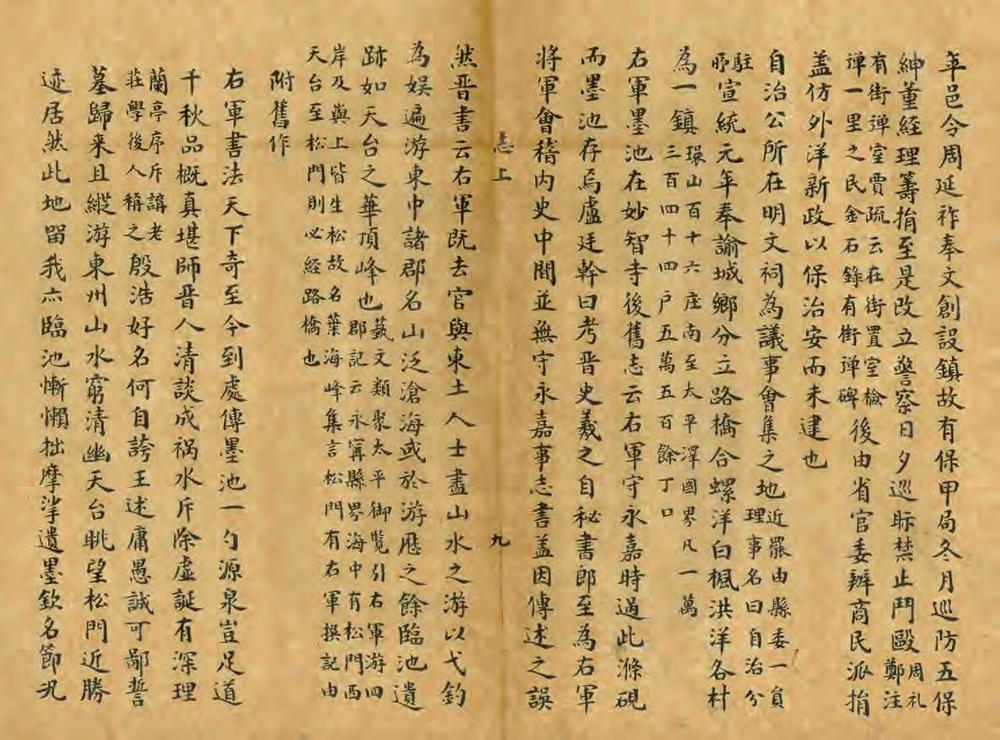 年邑令周延祚奉文創設鎮故有保甲局冬月巡防五保
紳董經理籌捐至是改立警察日夕巡眎禁止鬥毆周礼鄭注
有街彈室賈疏云在街置室檢
彈一里之民金石錄有街彈碑後由省官委辦商民派捐
蓋仿外洋新政以保治安而未逮也
自治公所在明文祠為議事會集之地近罷由縣委一員
駐理事名曰自治分
所宣統元年奉諭城鄉分立路橋合螺洋白楓洪洋各村
為一鎮環山百十六庄南至太平澤國界凡一萬
三百四十四户五萬五百餘丁口
右軍墨池在妙智寺後舊志云右軍守永嘉時過此滌硯
而墨池存焉盧廷幹曰考晋史羲之自秘書郎至為右軍
將軍會稽内史中間並無守永嘉事志書盖因傳述之誤
志上
九
然晋書云右軍既去官與東土人士盡山水之游以弋釣
為娱遍游東中諸郡名山泛滄海或於游歷之餘臨池遺
跡如天台之華頂峰也藝文類聚太平御覧引右軍游四
郡記云永寗縣界海中有松門西
岸及嶼上皆生松故名葉海峰集言松門有右軍撰記由
天台至松門則必經路橋也
附舊作
右軍書法天下奇至今到處傳墨池一勺源泉豈足道
千秋品概真堪師晋人清談成禍水斥除虛誕有深理
蘭亭序斥講老
莊學後人稱之殷浩好名何自誇王述庸愚誠可鄙誓
墓歸来且縱游東州山水窮清幽天台眺望松門近勝
迹居然此地留我亦臨池慚懶拙摩挲遺墨欽名節況